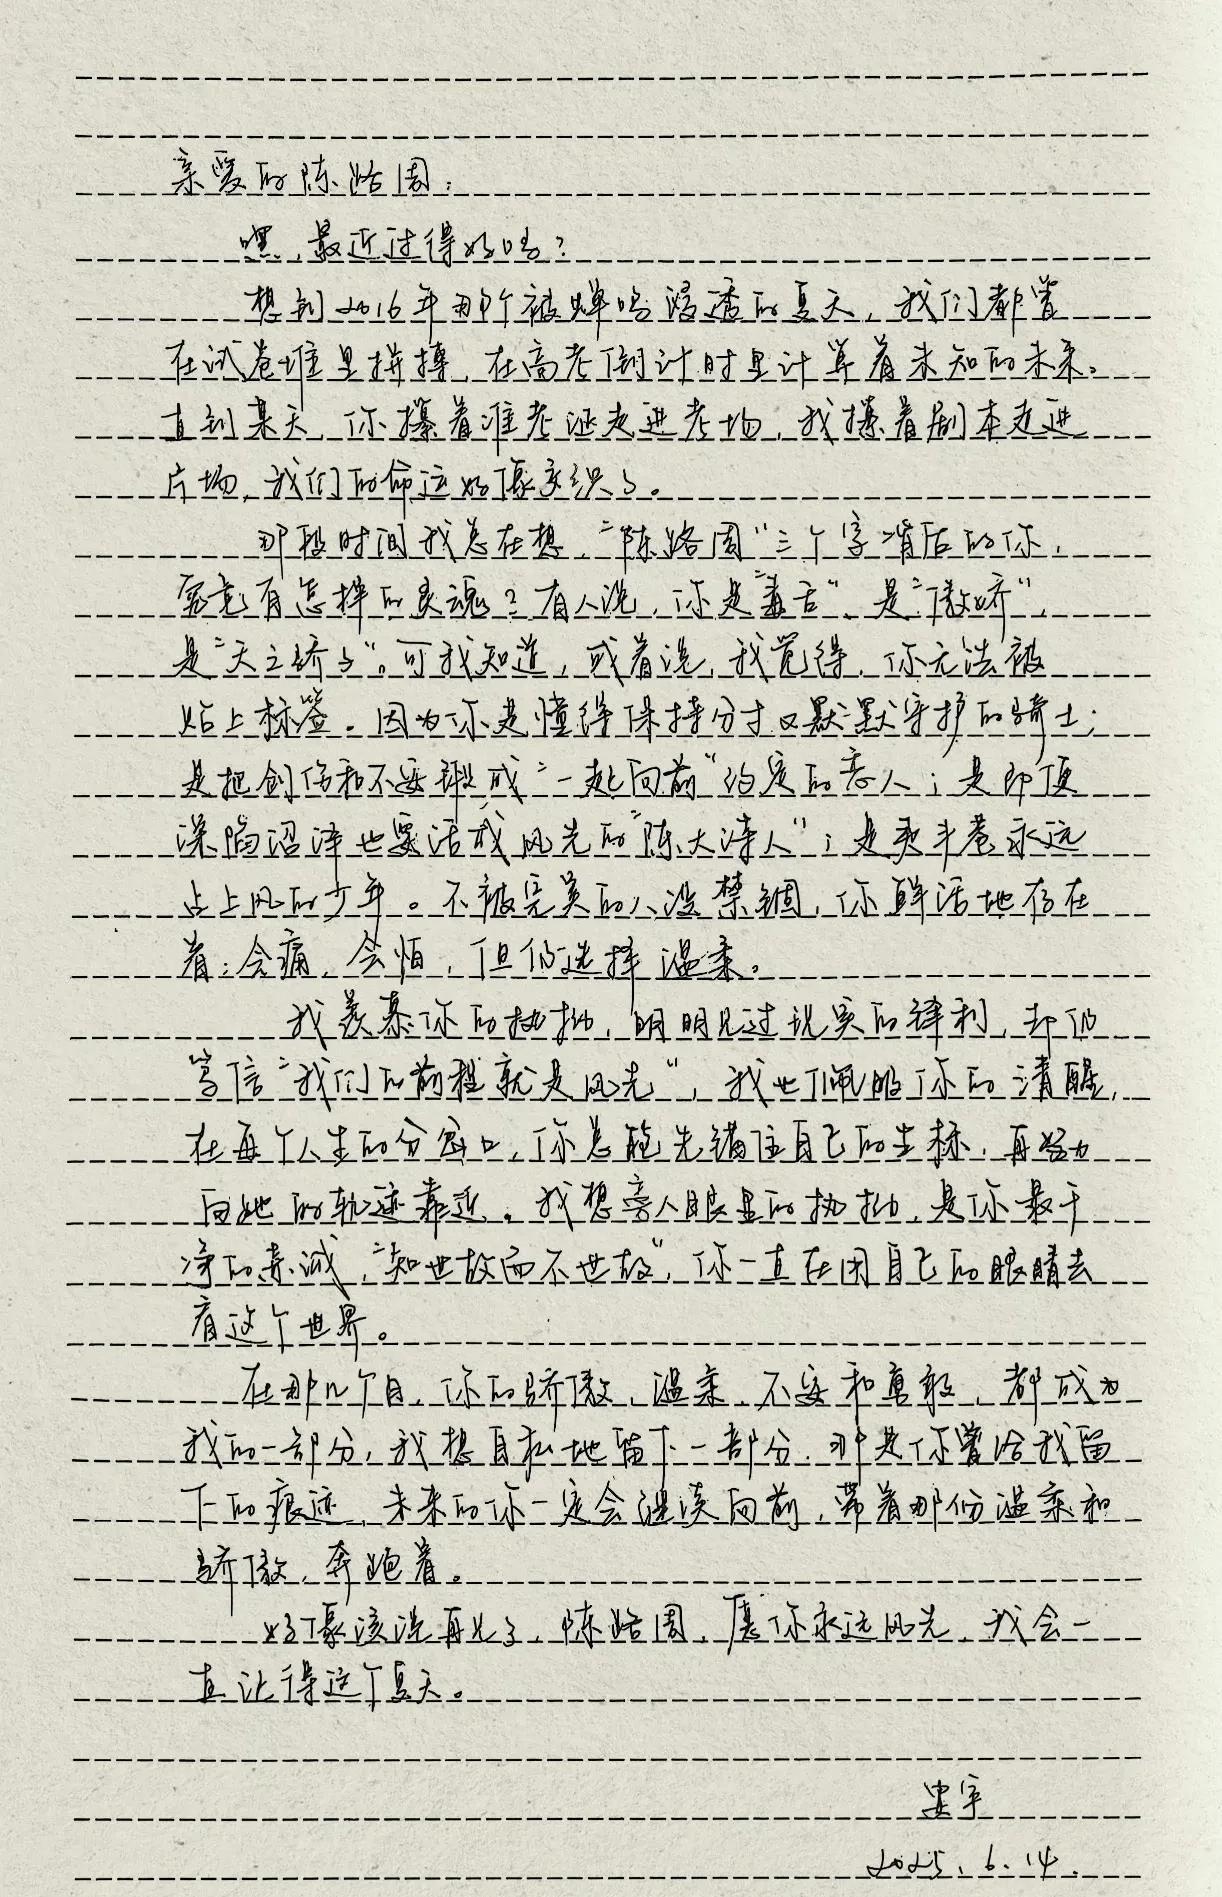 亲爱的陈路周：
嘿，最近过得好吗？
想到2016年那个被蝉鸣浸透的夏天，我们都曾
在试卷堆里拼搏，在高考倒计时里计算着未知的未来。
直到某天，你攥着准考证走进考场，我攥着剧本走进
片场，我们的命运好像交织了。
那段时间我总在想，“陈路周”三个字背后的你，
究竟有怎样的灵魂？有人说，你是“毒舌”、是“傲娇”，
是“天之骄子”。可我知道，或者说，我觉得，你无法被
贴上标签。因为你是懂得保持分寸又默默守护的骑士；
是把创伤和不安酿成“一起向前”约定的恋人；是即便
深陷沼泽也要活成风光的“陈大诗人”；是夷丰巷永远
占上风的少年。不被完美的人设禁锢，你鲜活地存在
着：会痛，会怕，但仍选择温柔。
我羡慕你的执拗，明明见过现实的锋利，却仍
笃信“我们的前程就是风光”，我也佩服你的清醒，
在每个人生的分岔口，你总能先锚住自己的坐标，再努力
向她的轨迹靠近。我想旁人眼里的执拗，是你最干
净的赤诚，“知世故而不世故”，你一直在用自己的眼睛去
看这个世界。
在那几个月，你的骄傲、温柔、不安和勇敢，都成为
我的一部分，我想自私地留下一部分，那是你曾给我留
下的痕迹，未来的你一定会继续向前，带着那份温柔和
骄傲，奔跑着。
好像该说再见了，陈路周，愿你永远风光，我会一
直记得这个夏天。
安宇
2025.6.14.